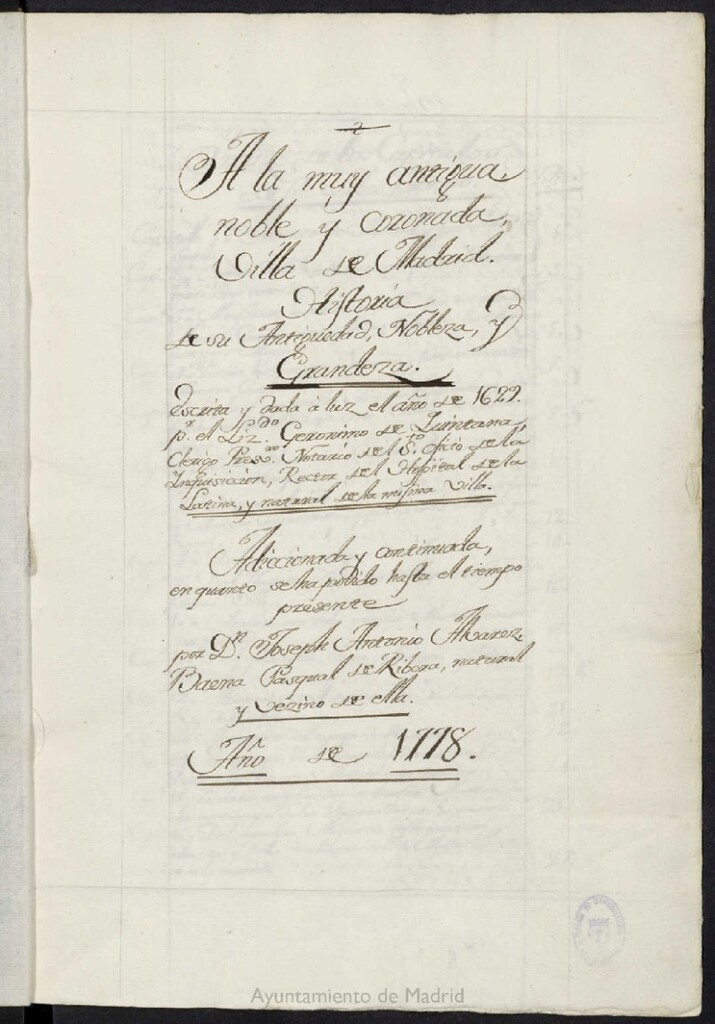 A la muy antigua
noble y coronada,
Villa de Madrid.
Historia
de su Antiguedad, Nobleza, y
Grandeza.
Escrita y dada à luz el año de 1629.
pr. el Lizdo. Geronimo de Quintana,
Clerigo Presvro. Notario del Sto. Oficio de la
Inquisicion, Rector del Hospital de la
Latina, y natural de la misma Villa.
Adiccionada y continuada,
en quanto se ha podido hasta el tiempo
presente
por Dn. Joseph Antonio Alvarez
Baena Pasqual de Ribera, natural
y vezino de ella.
Año de 1778.
Ayuntamiento de Madrid